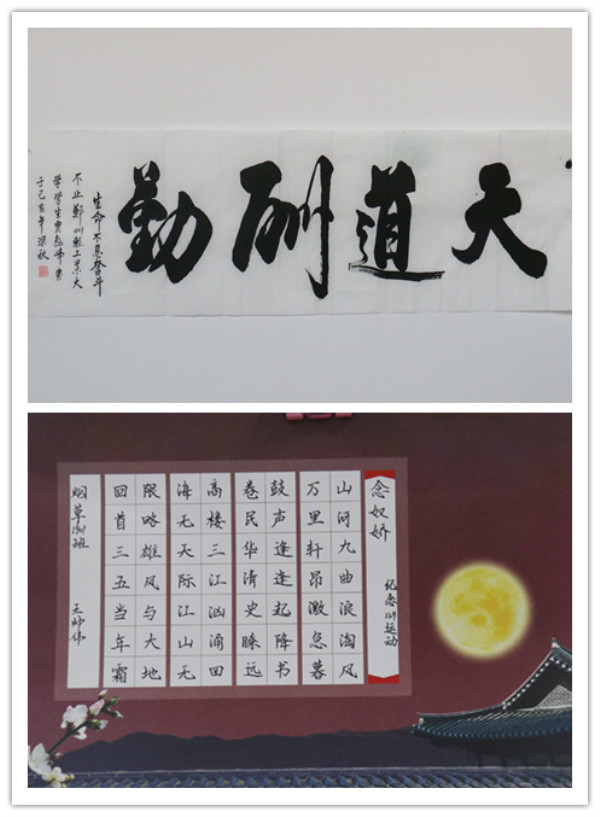 天道酬勤
生命不息奮斗
不止鄭州轻工業大
学学生
于己亥年深秋
念奴娇
纪念 运动
山河九曲浪淘风
万里轩昂激急暮
鼓声逢逢起降书
卷民华清史 远
高楼三江汹涌回
海无天际江山无
限略雄风与大地
回首三五当年霜
烟草 班 王帅伟